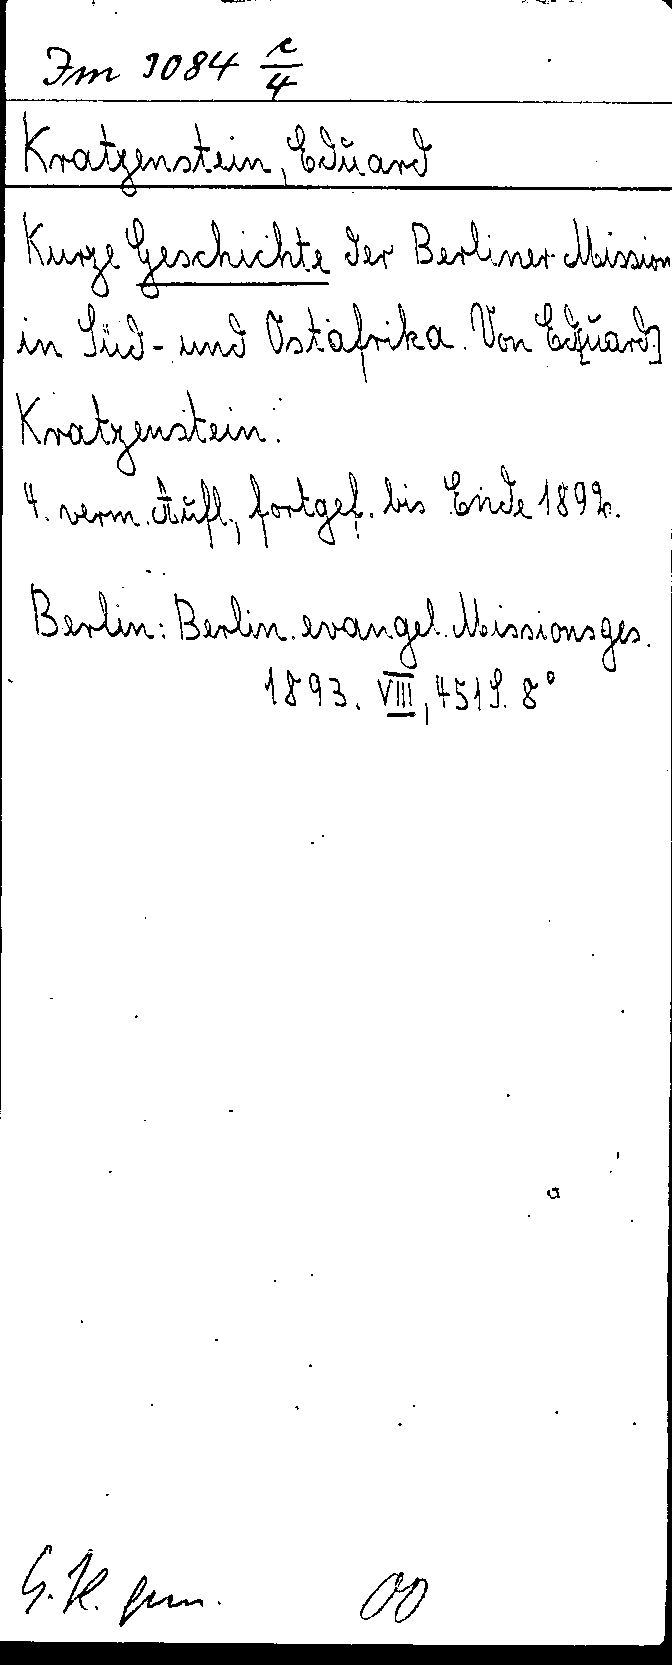 Im 3084 c/4
Kratzenstein, Eduard
Kurze Geschichte der Berliner Mission
in Süd- und Ostafrika. Von Ed[uard]
Kratzenstein.
4. verm. Aufl., fortgef. bis Ende 1892.
Berlin: Berlin. evangel. Missionsges.
1893. VIII, 451 S. 8°
G. K.